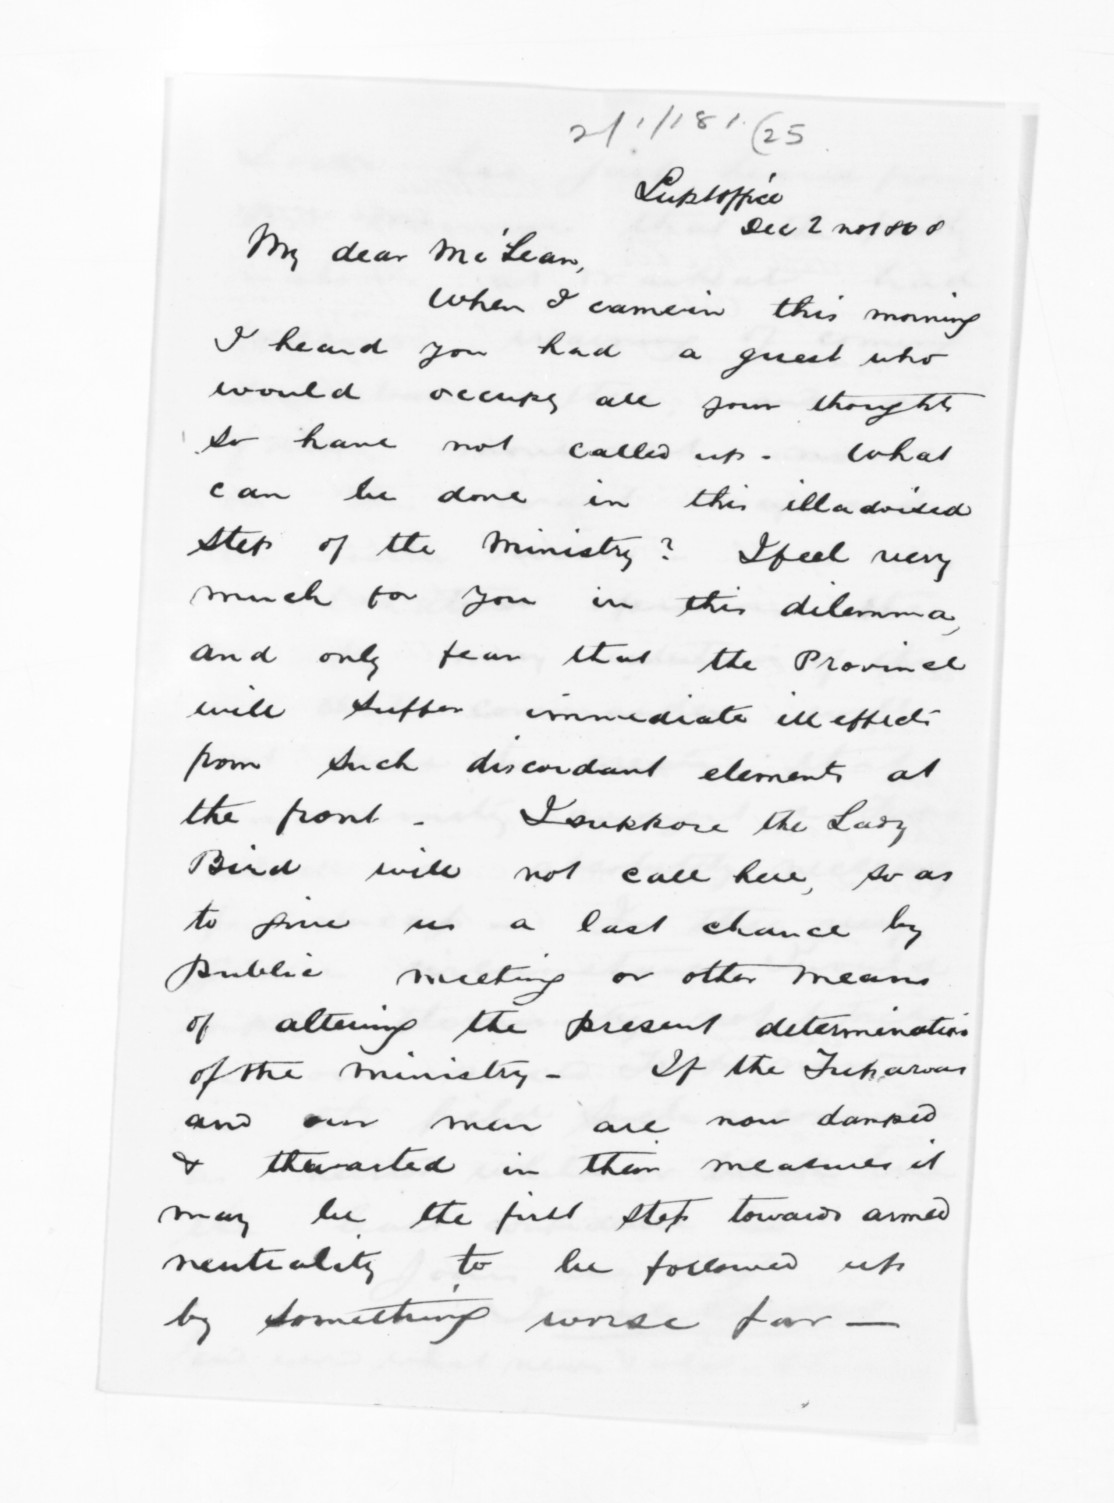 2/1/181 (25
Suptoffice
Dec 2
My dear McLean,
When I camein this morning
I heard you had a guest who
would occupy all your thoughts
so have not called up. What
can be done in this illadvised
step of the Ministry? Ifeel very
much for you in this dilemma,
and only fear that the Province
will suffer immediate ill effects
from such discordant elements at
the front - Isuppose the Lady
Bird will not call here, so as
to give us a last chance by
public meeting or other means
of altering the present determination
of the ministry - If the
and our men are now damped
& thwarted in their measures it
may be the first step towards armed
neutrality to be followed up
by something worse far -